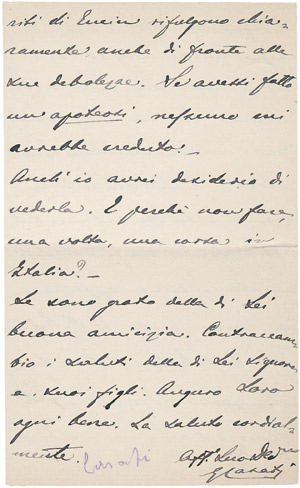 riti di Emin rifulgono chia-
ramente anche di fronte alle
sue debolezze. Se avessi fatto
un' apoteosi, nessuno mi
avrebbe creduto! –
Anch' io avrei desiderio di
vederla. E perchè non fare,
una volta, una corsa in
Italia? –
Le sono grato della di Lei
buona amicizia. Contraccam-
bio i saluti della di Lei Signora
e suoi figli. Auguro Loro
ogni bene. La saluto cordial-
mente.
Casati
GCasati